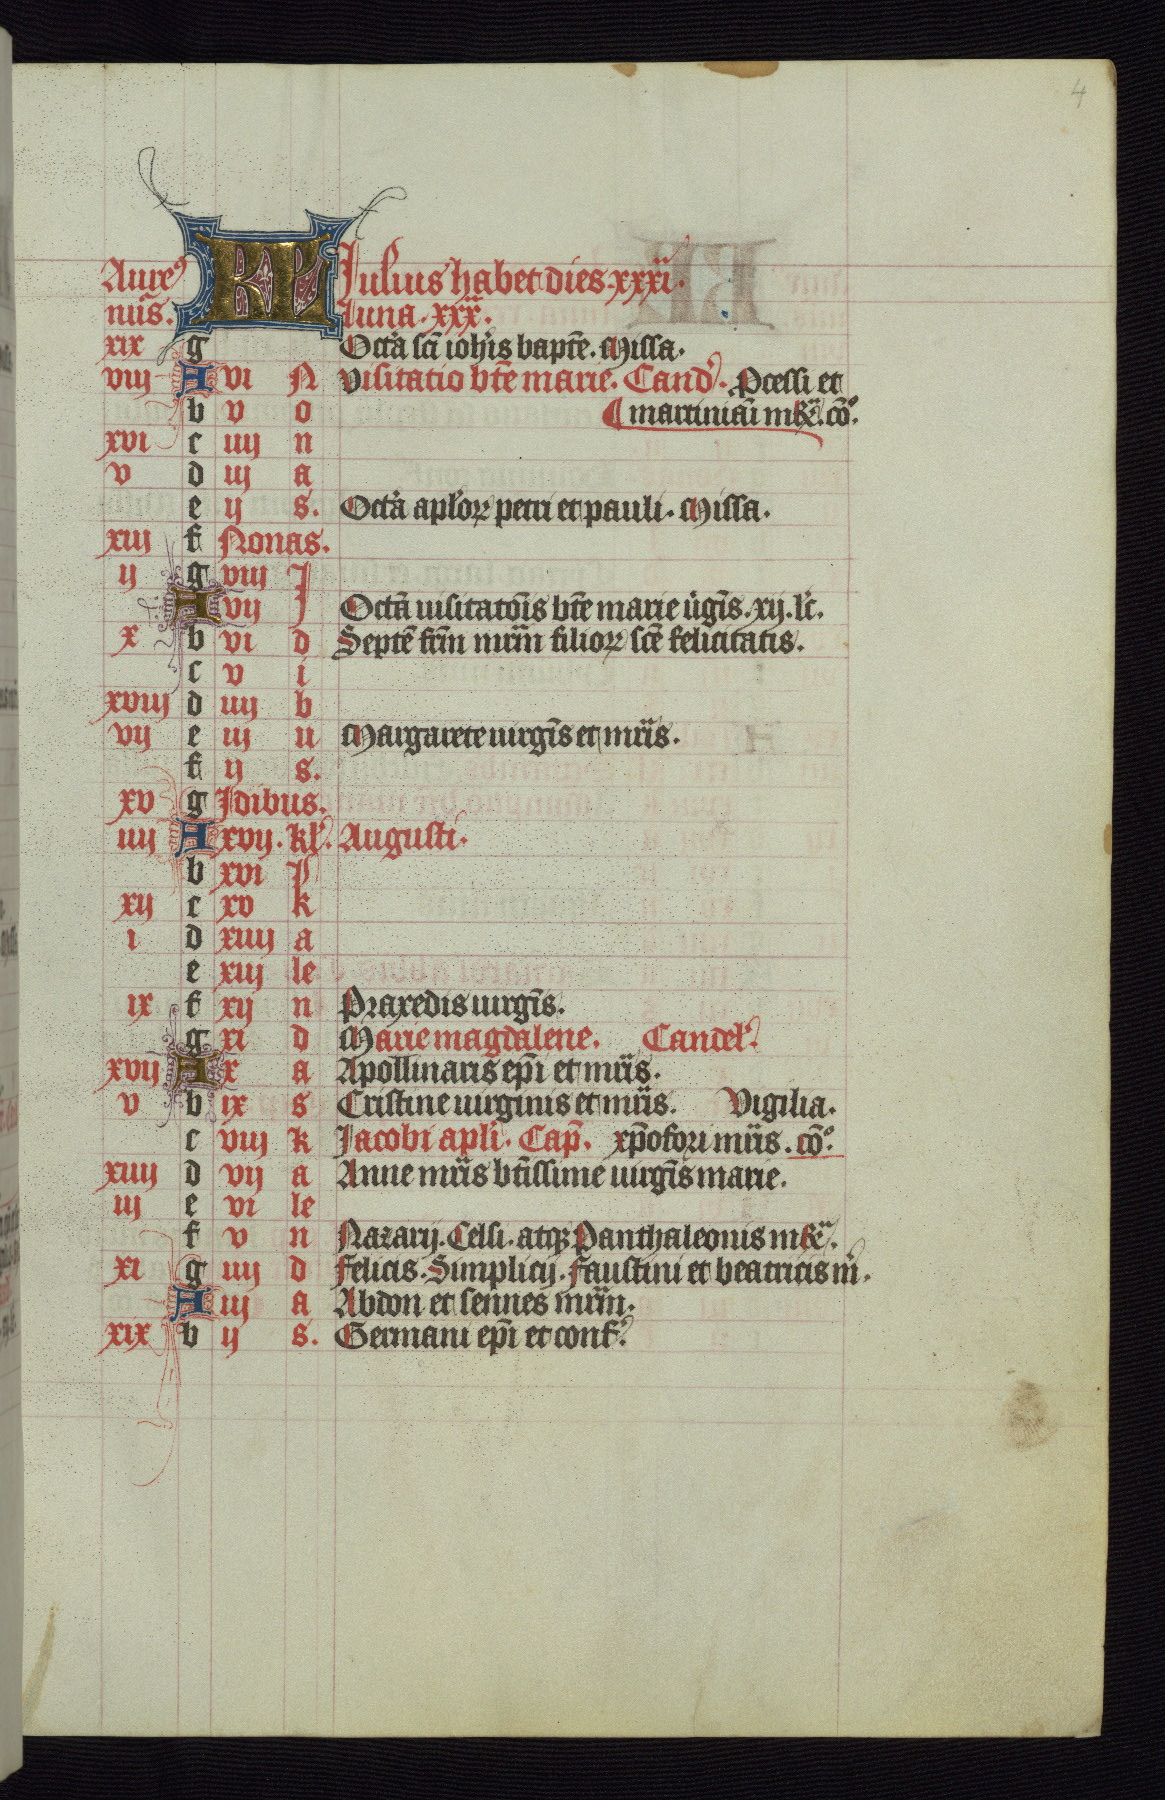 4
Aure⁹ KL Julius habet dies.xxxi.
nūs. luna.xxx.
xix g Octā sc̄i ioh̄is bapt̄e. Missa.
viij A vi N Visitatio bt̄e marie. Cand'. Pcessi et
b v o ¶ martiniāi mr̄. cō⁹.
xvi c iiij n
v d iij a
e ij s. Octā aplōꝝ petri et pauli. Missa.
xiij f Nonas.
ij g viij J
A vij J Octā uisitatōis bt̄e marie ūgīs. xij. lc̄.
x b vi d Septē fr̄m mr̄m filioꝝ sc̄e felicitatis.
c v i
xviij d iiij b
vij e iij u Margarete uirgīs et mr̄is.
f ij s.
xv g Jdibus.
iiij A xvij. kl'. Augusti.
b xvi P
xij c xv k
i d xiiij a
e xiij le
ix f xij n Praxedis uirgīs.
g xi d Marie magdalene. Candel'.
xvij A x a Apollinaris ep̄i et mr̄is.
v b ix s Cristine uirginis et mr̄is. Vigilia.
c viij k Jacobi apl̄i. Cap̄. xp̄ofori mr̄is. cō⁹.
xiiij d vij a Anne mr̄is bt̄issime uirgīs marie.
iij e vi le
f v n Nazarij. Celsi. atqꝫ Panthaleonis mr̄.
xi g iiij d Felicis. Simplicij. Faustini et beatricis m̄.
A iij a Abdon et sennes mr̄m.
xix b ij s. Germani ep̄i et conf'.